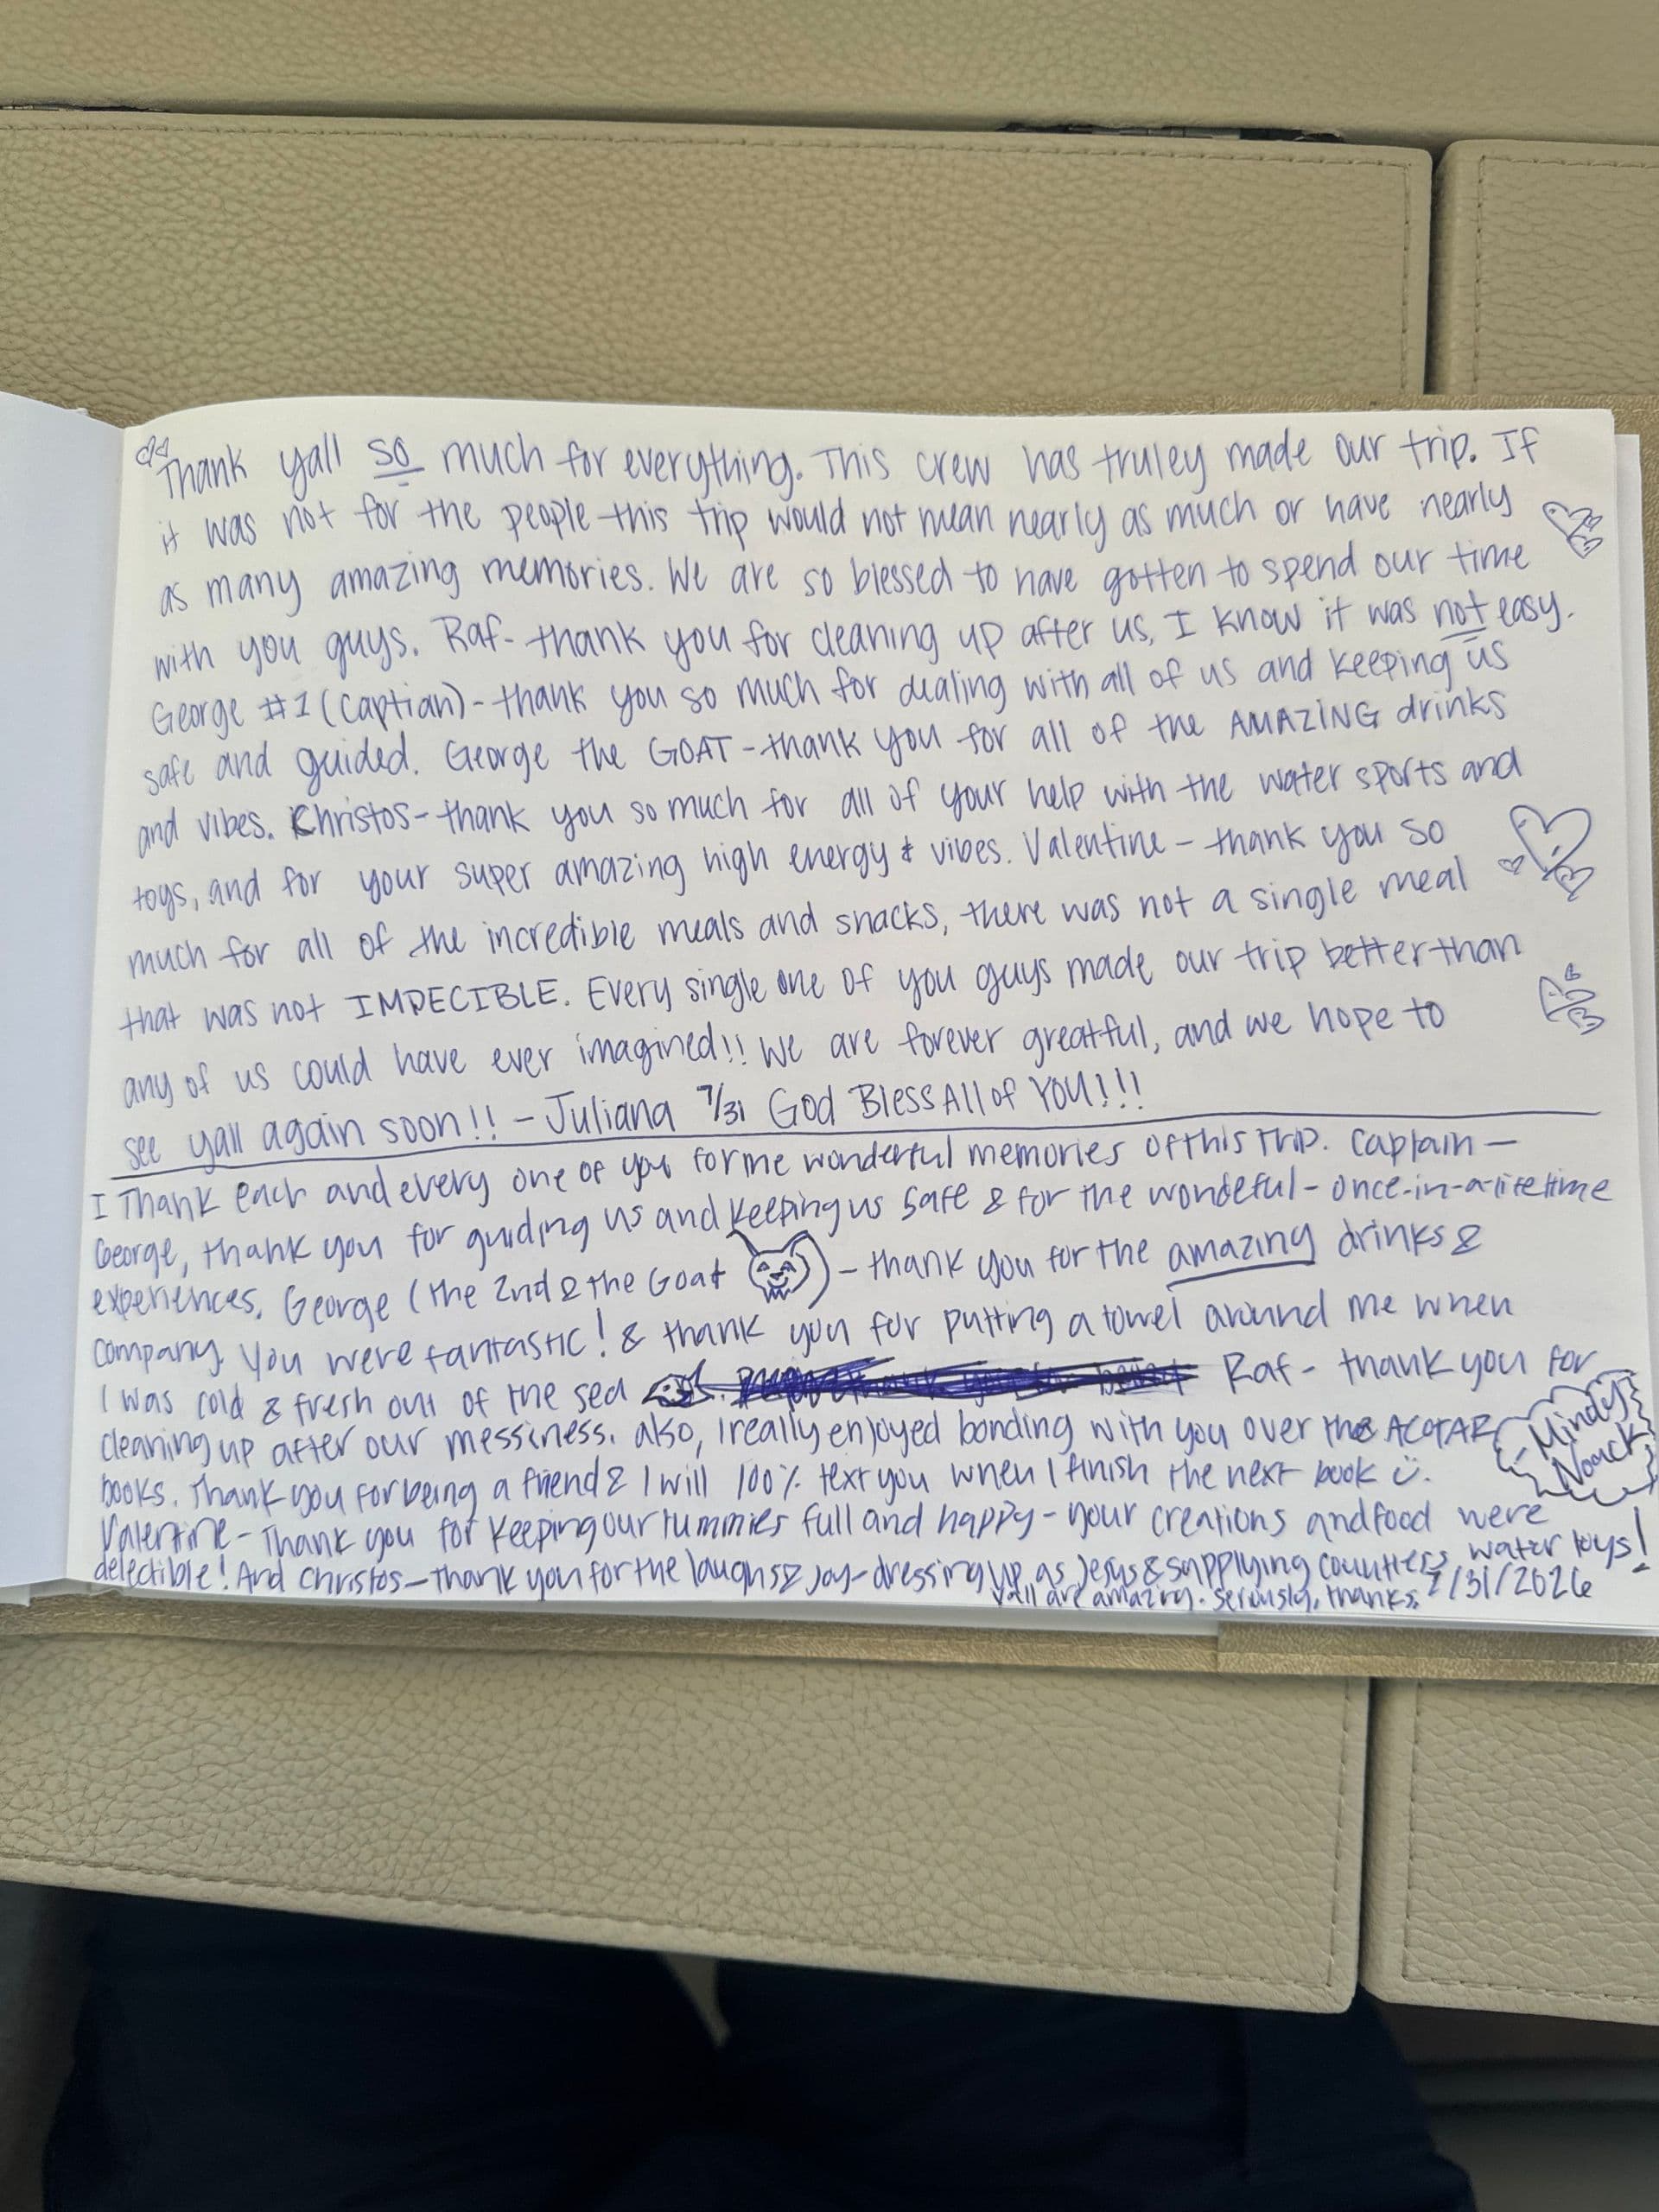 Thank yall so much for everything. This crew has truley made our trip. If
it was not for the people this trip would not mean nearly as much or have nearly
as many amazing memories. We are so blessed to have gotten to spend our time
with you guys. Raf- thank you for cleaning up after us, I know it was not easy.
George #1 (Captian)- thank you so much for dealing with all of us and keeping us
safe and guided. George the GOAT - thank you for all of the AMAZING drinks
and vibes. Christos- thank you so much for all of your help with the water sports and
toys, and for your super amazing high energy & vibes. Valentine - thank you so
much for all of the incredible meals and snacks, there was not a single meal
that was not IMPECIBLE. Every single one of you guys made our trip better than
any of us could have ever imagined!! We are forever greatful, and we hope to
see yall again soon!! - Juliana 7/31 God Bless All of YOU!!!
I Thank each and every one of you for the wonderful memories of this trip. Captain —
George, thank you for guiding us and keeping us safe & for the wondeful - once-in-a-lifetime
experiences. George (the 2nd & the Goat ) - thank you for the amazing drinks &
company. You were fantastic! & thank you for putting a towel around me when
I was cold & fresh out of the sea . Raf - thank you for
cleaning up after our messiness. also, I really enjoyed bonding with you over the ACOTAR
books. Thank you for being a friend & I will 100% text you when I finish the next book
Valentine - Thank you for keeping our tummies full and happy - your creations and food were
delectible! And Christos - thank you for the laughs & joy - dressing up as Jesus & supplying countless water toys!
Yall are amazing. Seriously, thanks. 7/31/2026
- Mindy
Noack